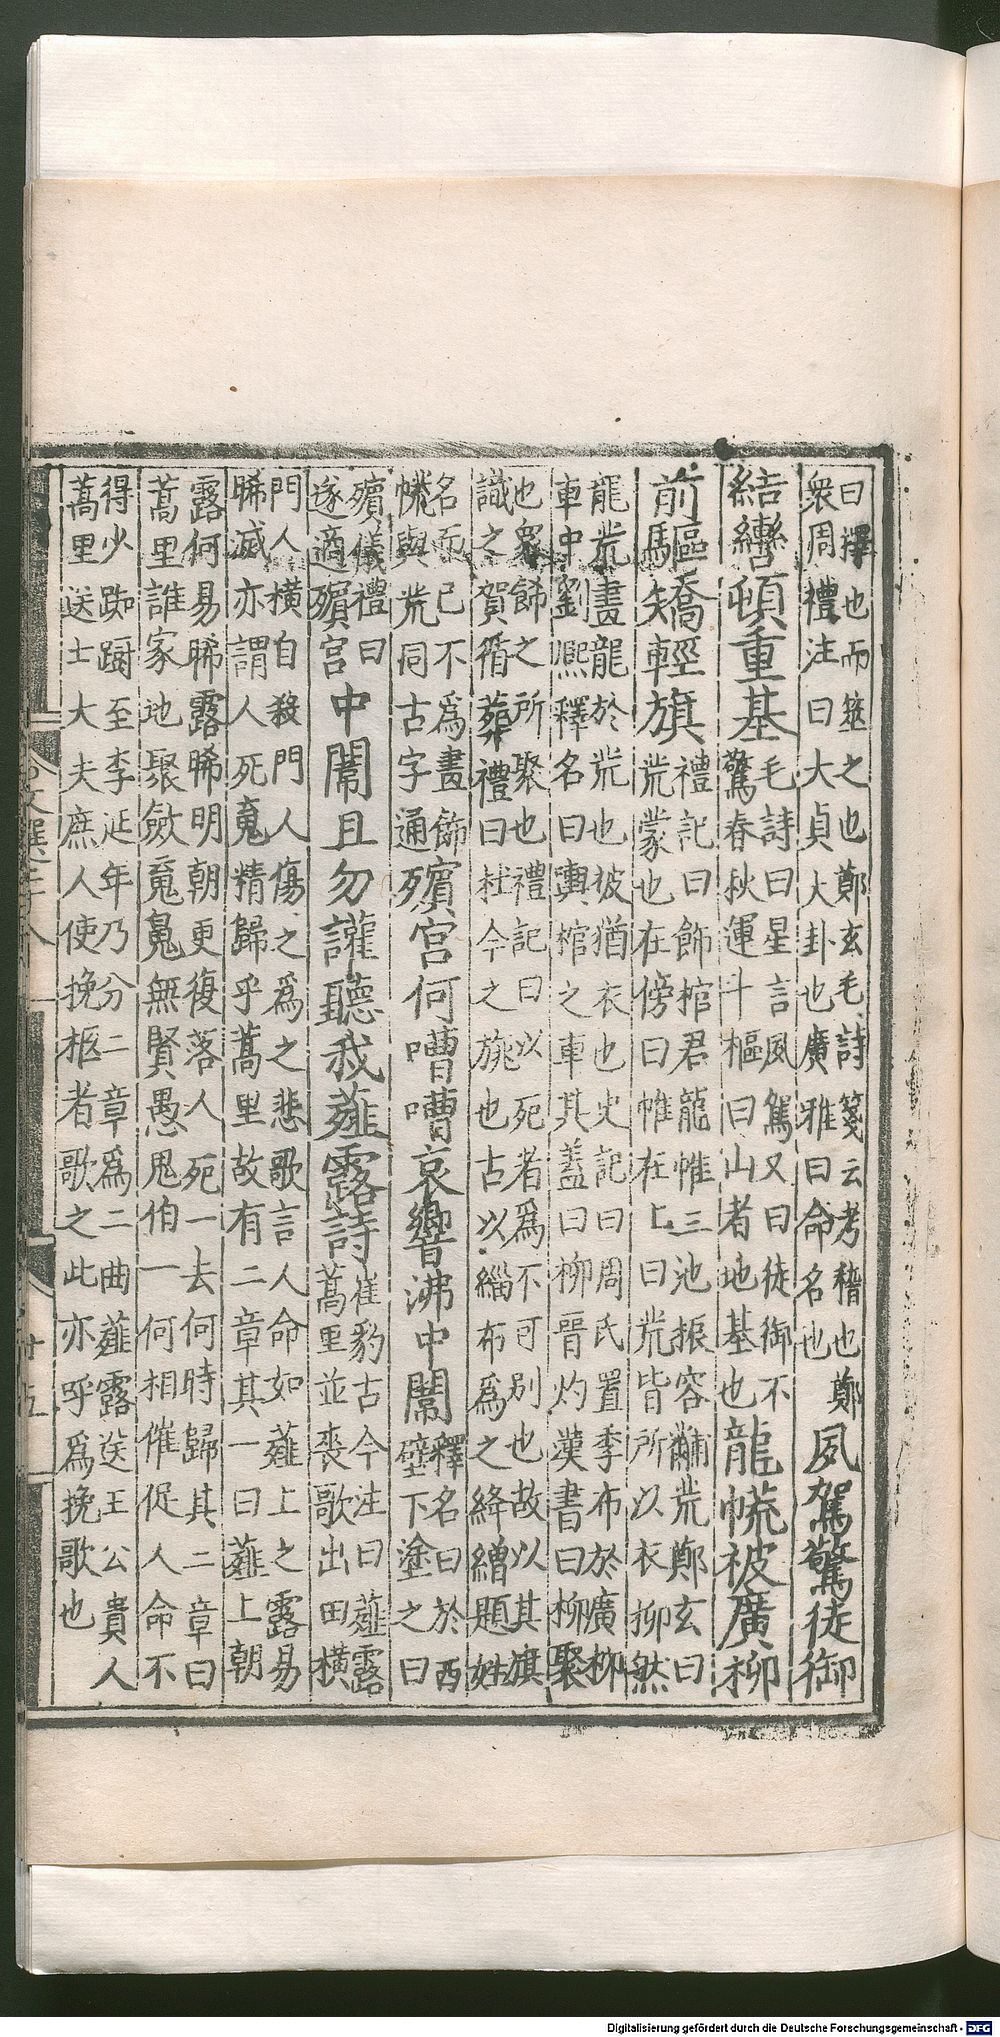 曰擇也而筮之也鄭玄毛詩箋云考稽也鄭
衆周禮注曰大貞大卦也廣雅曰命名也
夙駕驚徒御
結轡頓重基
毛詩曰星言夙駕又曰徒御不
驚春秋運斗樞曰山者地基也
龍㡛被廣柳
前驅矯輕旗
禮記曰飾棺君龍帷三池振容黼荒鄭玄曰
荒蒙也在傍曰帷在上曰荒皆所以衣柳然
龍荒畫龍於荒也彼猶衣也史記曰周氏置季布於廣柳
車中劉熙釋名曰輿棺之車其蓋曰柳晉灼漢書曰柳聚
也衆飾之所聚也禮記曰以死者爲不可別也故以其旗
識之賀循葬禮曰杜今之旐也古以緇布爲之絳繒題姓
名而已不爲畫飾
㡛與荒同古字通
殯宮何嘈嘈哀響沸中闈
釋名曰於西
壁下塗之曰
殯儀禮曰
遂適殯宮
中闈且勿讙聽我薤露詩
崔豹古今注曰薤露
蒿里並喪歌出田橫
門人橫自殺門人傷之爲之悲歌言人命如薤上之露易
晞滅亦謂人死䰟精歸乎蒿里故有二章其一曰薤上朝
露何易晞露晞明朝更復落人死一去何時歸其二章曰
蒿里誰家地聚斂䰟魄無賢愚鬼伯一何相催促人命不
得少踟躕至李延年乃分二章爲二曲薤露送王公貴人
蒿里送士大夫庶人使挽柩者歌之此亦呼爲挽歌也
文選二十八
廿五
Digitalisierung gefördert durch die Deutsche Forschungsgemeinschaft - DFG